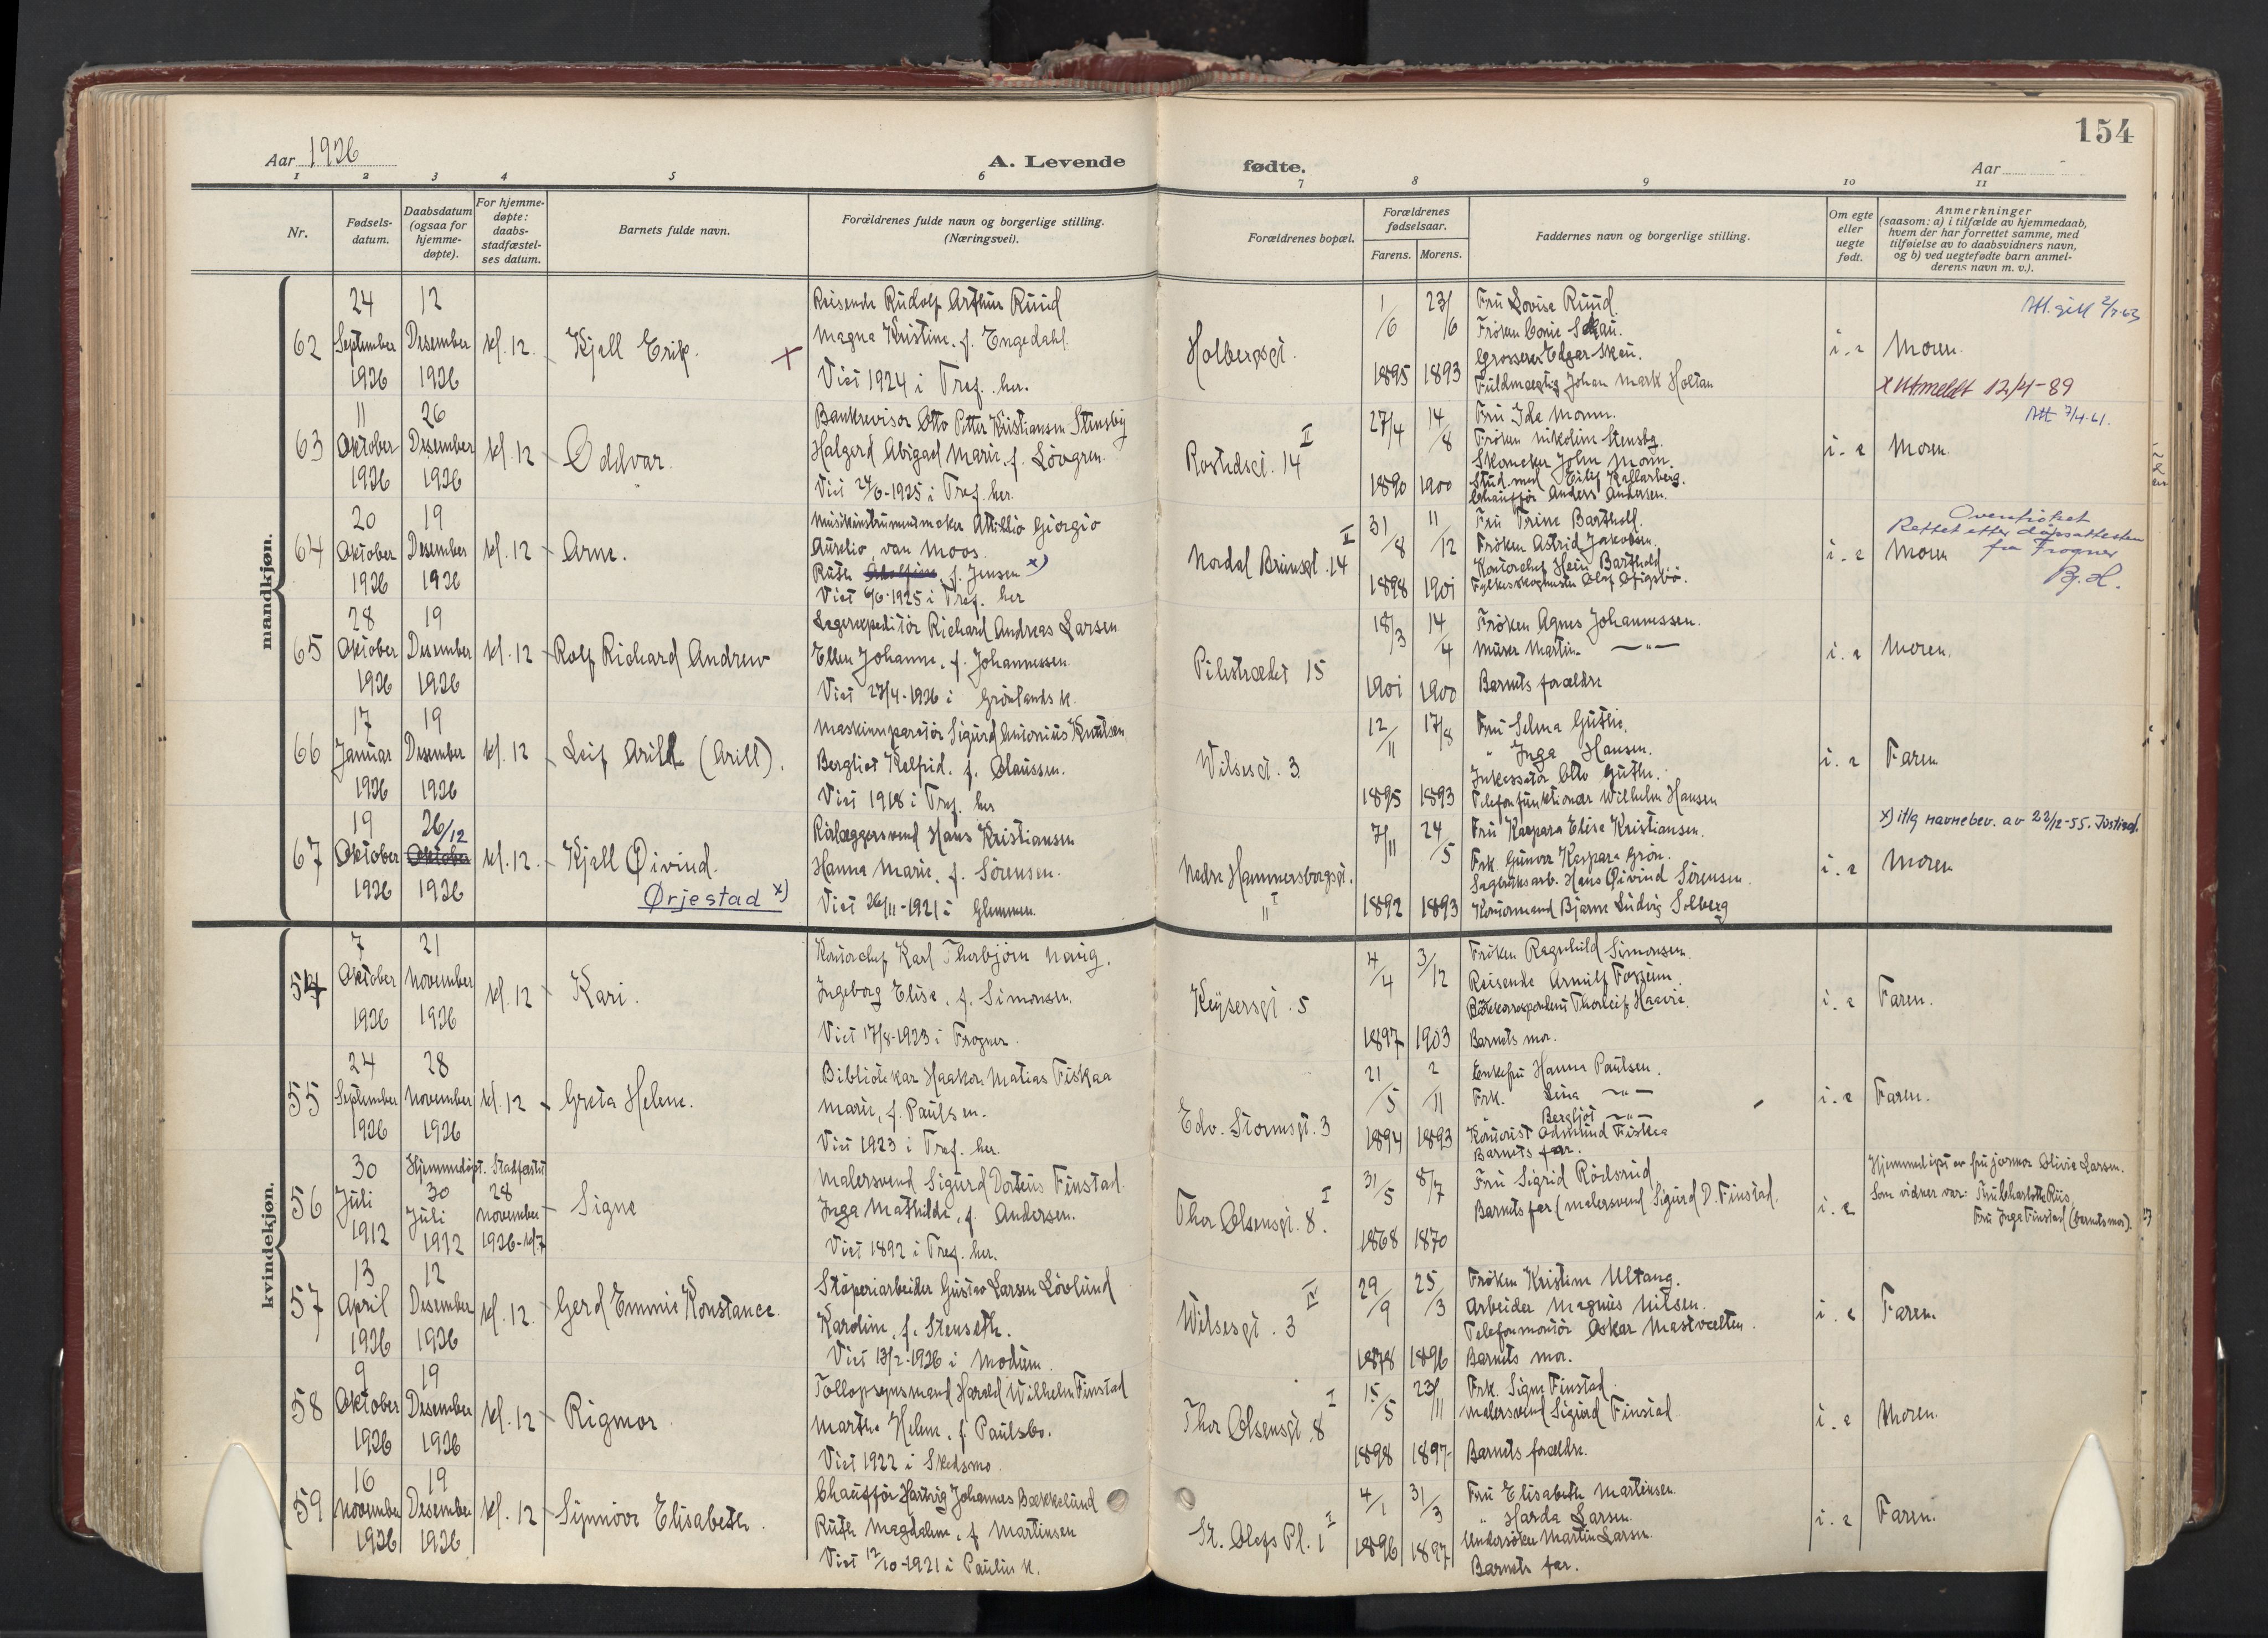 154
Aar 1926
A. Levende fødte.
Aar
1 2 3 4 5 6 7 8 9 10 11
Nr.
Fødsels-
datum.
Daabsdatum
(ogsaa for
hjemme-
døpte).
For hjemme-
døpte:
daabs-
stadfæstel-
ses datum.
Barnets fulde navn.
Forældrenes fulde navn og borgerlige stilling.
(Næringsvei).
Forældrenes bopæl.
Forældrenes
fødselsaar.
Farens. Morens.
Faddernes navn og borgerlige stilling.
Om egte
eller
uegte
født.
Anmerkninger
(saasom: a) i tilfælde av hjemmedaab,
hvem der har forrettet samme, med
tilføielse av to daabsvidners navn,
og b) ved uegtefødte barn anmel-
derens navn m. v.).
mandkjøn.
62
24
September
1926
12
Desember
1926
kl. 12
Kjell Erik.
x
Reisende Rudolf Arthur Ruud
Magna Kristine, f. Engedahl.
Viet 1924 i Tref. her.
Holbergsgt.
1/6
1895
23/6
1893
Fru Lovise Ruud.
Frøken Skau.
Grosserer Edgar Skau.
Fuldmægtig Johan Mark Holtan
i. e
Moren.
x Utmeldt 12/4-89
63
11
Oktober
1926
26
Desember
1926
kl. 12
Oddvar.
Bankrevisor Otto Petter Kristiansen Stensby
Halgerd Abigael Marie, f. Lövgren.
Viet 24/6-1925 i Tref. her.
Rostedsgt. 14 II
27/4
1890
14/8
1900
Fru Ida Monn.
Frøken Nikoline Stensby.
Skomaker John Monn.
Stud. med Eilif Kallarberg.
Chauffør Anders Andersen.
i. e
Moren.
Att 7/4.61.
64
20
Oktober
1926
19
Desember
1926
kl. 12
Arne.
Musikinstrumentmaker Attillio Giorgio
Aurelio van Moos.
Ruth f. Jensen x)
Viet 6/6-1925 i Tref. her
Nordal Brunsgt. 14 II
31/8
1898
11/12
1901
Fru Trine Barthold.
Frøken Astrid Jakobsen.
Kontorchef Hein Barthold.
i. e
Moren
Overstrøket
Rettet etter dåpsattesten
fra Frogner
B. H.
65
28
Oktober
1926
19
Desember
1926
kl. 12
Rolf Richard Andrew
Lagerexpeditör Richard Andreas Larsen
Ellen Johanne, f. Johannessen.
Viet 27/4-1926 i Grönlands k.
Pilestrædet 15
18/3
1901
14/4
1900
Frøken Agnes Johannessen.
Murer Martin — " —
Barnets forældre
i. e
Moren.
66
17
Januar
1926
19
Desember
1926
kl. 12
Leif Arild (Arill).
Maskinreparatør Sigurd Antonius Knutsen
Bergliot Kelfrid, f. Olaussen.
Viet 1918 i Tref. her
Wilsesgt. 3
12/11
1895
17/8
1893
Fru Selma Guthe.
" Inga Hansen.
Inkassator Otto Guthe.
Telefonfunktionær Wilhelm Hansen
i. e
Faren
67
19
Oktober
1926
26/12
Oktober
1926
kl. 12.
Kjell Øivind.
Ørjestad x)
Rørlæggersvend Hans Kristiansen
Hanna Marie, f. Sörensen.
Viet 26/11-1921 i Glemmen.
Nedre Hammersborggt.
11 I
7/11
1892
24/5
1893
Fru Kaspara Elise Kristiansen.
Frk. Gunvor Kaspara Grön.
Sagbruksarb. Hans Øivind Sörensen.
Kontormand Bjarne Ludvig Solberg
i. e
Moren
x) iflg navnebev. av 22/12-55. Justisd.
kvindekjøn.
54
7
Oktober
1926
21
November
1926
kl. 12
Kari.
Kontorchef Karl Thorbjörn Navig.
Ingeborg Elise, f. Simonsen.
Viet 17/8-1923 i Frogner.
Keysersgt. 5
4/4
1897
3/12
1903
Frøken Ragnhild Simonsen.
Reisende Arnulf Fossum.
Thorleif Haavie.
Barnets mor.
i. e
Faren.
55
24
September
1926
28
November
1926
kl. 12
Greta Helene.
Bibliotekar Haakon Matias Fiskaa
Marie, f. Paulsen.
Viet 1923 i Tref. her.
Edv. Stormsgt. 3
21/5
1894
2/11
1893
Enkefru Hanna Paulsen.
Frk. Lina — " —
Bergljot — " —
Kontorist Edmund Fiskaa
Barnets far.
i. e
Faren.
56
30
Juli
1912
Hjemmedöpt. Stadfæstet
30
Juli
1912
28
November
1926 - kl. 7
Signe
Malersvend Sigurd Dorteus Finstad.
Inga Mathilde, f. Andersen.
Viet 1892 i Tref. her.
Thor Olsensgt. 8. I
31/5
1868
8/7
1870
Fru Sigrid Rödsrud
Barnets far (malersvend Sigurd D. Finstad.
i. e
Hjemmedöpt av fru jormor Olivie Larsen.
Som vidner var: Fru Charlotte Riis,
Fru Inga Finstad (barnets mor).
57
13
April
1926
12
Desember
1926
kl. 12.
Gerd Emmie Konstance.
Støperiarbeider Gustav Larsen Lövlund
Karoline, f. Stenseth.
Viet 13/2-1926 i Modum.
Wilsesgt. 3 IV
29/9
1878
25/3
1896
Frøken Kristine Ultang.
Arbeider Magnus Nilsen.
Telefonmontør Oskar Mastvelten.
Barnets mor.
i. e
Faren.
58
9
Oktober
1926
19
Desember
1926
kl. 12
Rigmor
Tollopsynsmand Harald Wilhelm Finstad
Marthe Helene, f. Paulsbo.
Viet 1922 i Skedsmo.
Thor Olsensgt. 8 I
15/5
1898
23/11
1897
Frk. Signe Finstad.
Malersvend Sigurd Finstad.
Barnets forældre.
i. e
Moren.
59
16
November
1926
19
Desember
1926
kl. 12
Synnöve Elisabeth.
Chauffør Hartvig Johannes Bækkelund
Ruth Magdalene, f. Martinsen
Viet 12/10-1921 i Paulus k.
St. Olafs Pl. 1 I
4/1
1896
31/3
1897
Fru Elisabeth Martinsen.
" Harda Larsen.
Martin Larsen.
Barnets far.
i. e
Faren.